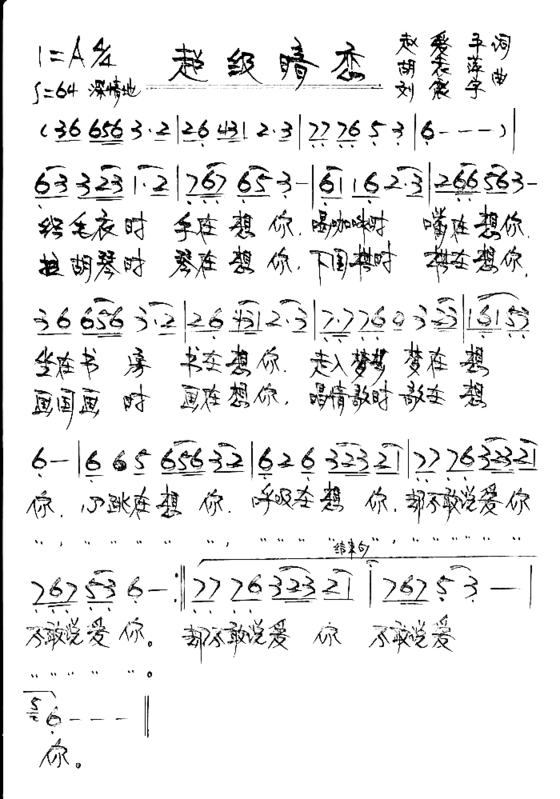 1=A 4/4 超级暗恋 赵爱平 词
胡志萍
刘震宇 曲
♩=64 深情地
(36 656 3·2|26 431 2·3|77 76 5 3|6---)|
63 323 1·2|767 65 3-|611 6 2·3|266 563-
织毛衣时 手在想你,喝咖啡时 嘴在想你,
拉胡琴时 琴在想你,下围棋时 棋在想你,
36 656 3·2|26 431 2·3|7776 0 3 23|16153
坐在书房 书在想你,走入梦乡 梦在想
画国画时 画在想你,唱情歌时 歌在想
6-|6 6 5 656 32|626 323 21|77 76 323 21
你,心跳在想你,呼吸在想你,却不敢说爱你
结束句
767 53 6-:‖77 76 323 21|767 5 3-|
不敢说爱你。却不敢说爱你 不敢说爱
6---‖
你。